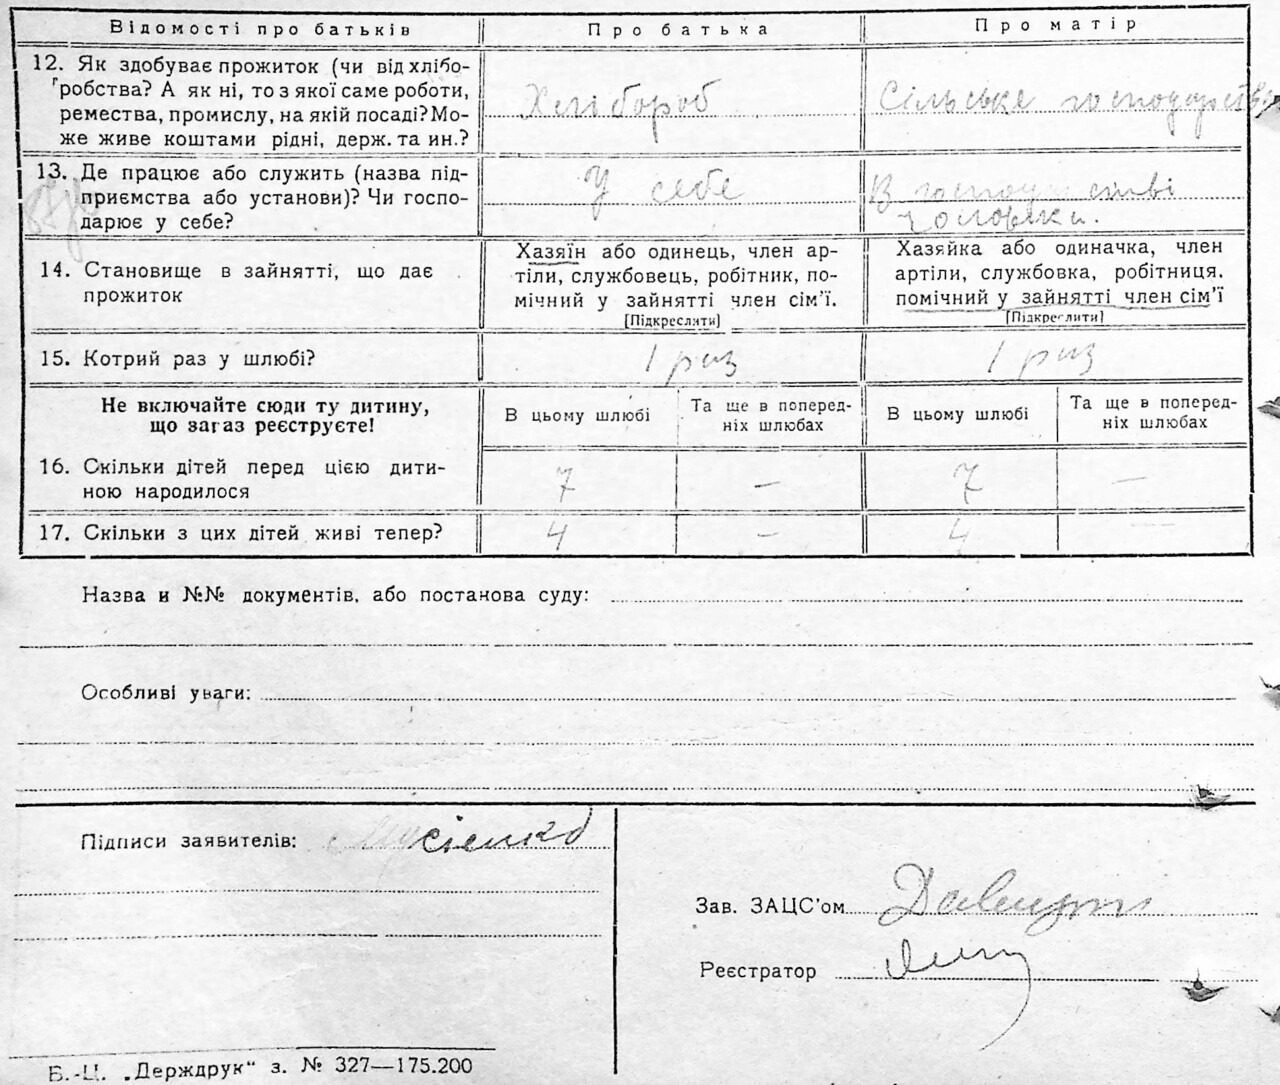 Відомості про батьків Про батька Про матір
12. Як здобуває прожиток (чи від хлібо-
робства? А як ні, то з якої саме роботи,
ремества, промислу, на якій посаді? Мо-
же живе коштами рідні, держ. та ин.?
Хлібороб
Сільське господарство
13. Де працює або служить (назва під-
приємства або установи)? Чи госпо-
дарює у себе?
У себе
В господарстві
чоловіка.
14. Становище в зайнятті, що дає
прожиток
Хазяїн або одинець, член ар-
тіли, службовець, робітник, по-
мічний у зайнятті член сім'ї.
[Підкреслити]
Хазяйка або одиначка, член
артіли, службовка, робітниця.
помічний у зайнятті член сім'ї
[Підкреслити]
15. Котрий раз у шлюбі? 1 раз 1 раз
Не включайте сюди ту дитину,
що загаз реєструєте!
В цьому шлюбі
Та ще в поперед-
ніх шлюбах
В цьому шлюбі
Та ще в поперед-
ніх шлюбах
16. Скільки дітей перед цією дити-
ною народилося
7 – 7 –
17. Скільки з цих дітей живі тепер? 4 – 4 –
Назва и №№ документів, або постанова суду:
Особливі уваги:
Підписи заявителів: Мусієнко
Зав. ЗАЦС'ом
Реєстратор
Б.-Ц. „Держдрук“ з. № 327—175.200